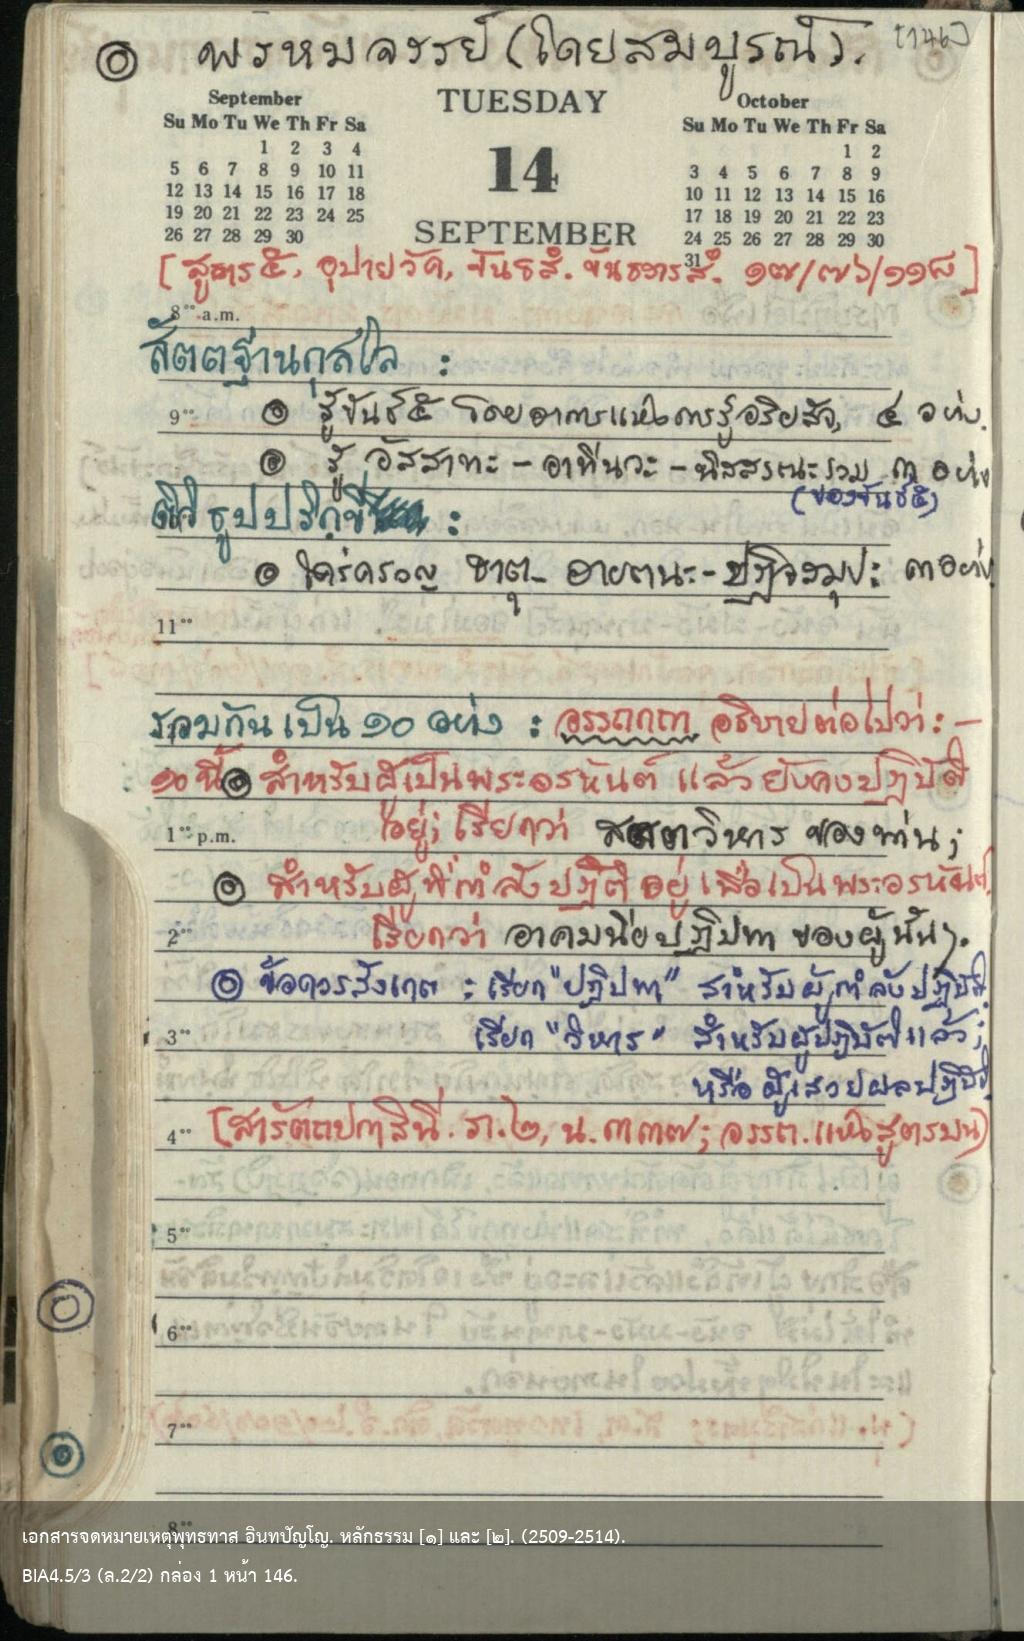 ๏ พรหมจรรย์ (โดยสมบูรณ์).
September
Su Mo Tu We Th Fr Sa
1 2 3 4
5 6 7 8 9 10 11
12 13 14 15 16 17 18
19 20 21 22 23 24 25
26 27 28 29 30
TUESDAY
14
SEPTEMBER
October
Su Mo Tu We Th Fr Sa
1 2
3 4 5 6 7 8 9
10 11 12 13 14 15 16
17 18 19 20 21 22 23
24 25 26 27 28 29 30
31
[สูตร ๕, อุปายวัค, ขันธสํ. ขันธวารสํ. ๑๗/๗๖/๑๑๘]
8ºº a.m.
สัตตฐานกุสโล :
9ºº ๏ รู้ขันธ์ ๕ โดยอาการแห่งการรู้อริยสัจ, ๔ อย่าง.
๏ รู้ อัสสาทะ - อาทีนวะ - นิสสรณะ รวม ๓ อย่าง
(ของขันธ์ ๕)
ติวิธูปปริกขี :
๏ ใคร่ครวญ ธาตุ - อายตนะ - ปฏิจจสมุป: ๓ อย่าง.
11ºº
รวมกันเป็น ๑๐ อย่าง : อรรถกถา อธิบายต่อไปว่า: —
๑๐ นี้ ๏ สำหรับผู้เป็นพระอรหันต์ แล้วยังคงปฏิบัติ
1ºº p.m. อยู่; เรียกว่า สตตวิหาร ของท่าน;
๏ สำหรับผู้ที่กำลังปฏิบัติอยู่ เพื่อเป็นพระอรหันต์
2ºº เรียกว่า อาคมนียปฏิปทา ของผู้นั้นๆ.
๏ ข้อควรสังเกต : เรียก "ปฏิปทา" สำหรับผู้กำลังปฏิบัติ.
3ºº เรียก "วิหาร" สำหรับผู้ปฏิบัติแล้ว;
หรือ ผู้เสวยผลปฏิบัติ
4ºº [สารัตถปกาสินี. ภ.๒, น. ๓๓๗; อรรถ. แห่งสูตรบน]
5ºº
6ºº
7ºº
8ºº
เอกสารจดหมายเหตุพุทธทาส อินทปัญโญ. หลักธรรม [๑] และ [๒]. (2509-2514).
BIA4.5/3 (ล.2/2) กล่อง 1 หน้า 146.